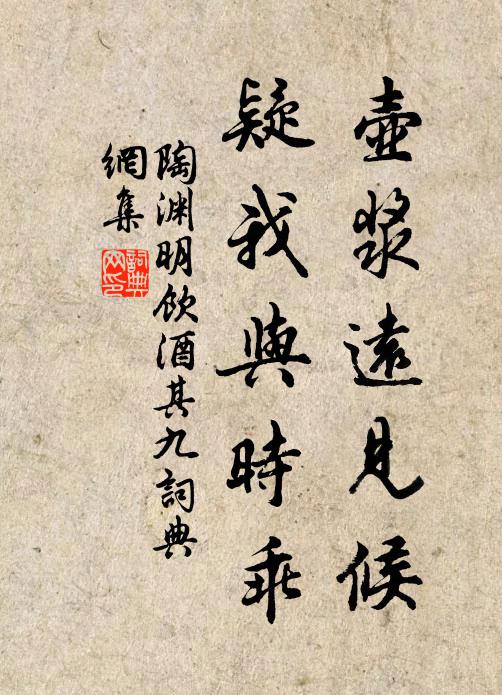 壺漿遠見候
疑我與時乖
陶淵明飲酒其九詞典
網集
詞典
网印